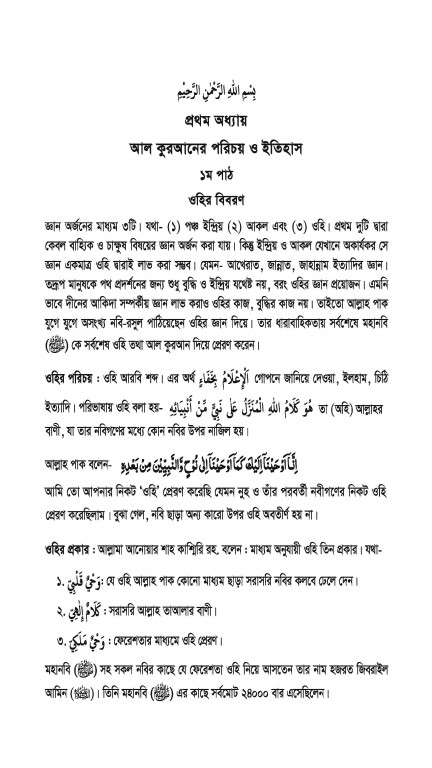 بِسْمِ اللهِ الرَّحْمٰنِ الرَّحِيْمِ
প্রথম অধ্যায়
আল কুরআনের পরিচয় ও ইতিহাস
১ম পাঠ
ওহির বিবরণ
জ্ঞান অর্জনের মাধ্যম ৩টি। যথা- (১) পঞ্চ ইন্দ্রিয় (২) আকল এবং (৩) ওহি। প্রথম দুটি দ্বারা
কেবল বাহ্যিক ও চাক্ষুষ বিষয়ের জ্ঞান অর্জন করা যায়। কিন্তু ইন্দ্রিয় ও আকল যেখানে অকার্যকর সে
জ্ঞান একমাত্র ওহি দ্বারাই লাভ করা সম্ভব। যেমন- আখেরাত, জান্নাত, জাহান্নাম ইত্যাদির জ্ঞান।
তদ্রূপ মানুষকে পথ প্রদর্শনের জন্য শুধু বুদ্ধি ও ইন্দ্রিয় যথেষ্ট নয়, বরং ওহির জ্ঞান প্রয়োজন। এমনি
ভাবে দীনের আকিদা সম্পর্কীয় জ্ঞান লাভ করাও ওহির কাজ, বুদ্ধির কাজ নয়। তাইতো আল্লাহ পাক
যুগে যুগে অসংখ্য নবি-রসুল পাঠিয়েছেন ওহির জ্ঞান দিয়ে। তার ধারাবাহিকতায় সর্বশেষে মহানবি
(ﷺ) কে সর্বশেষ ওহি তথা আল কুরআন দিয়ে প্রেরণ করেন।
ওহির পরিচয় : ওহি আরবি শব্দ। এর অর্থ اَلْإِعْلَامُ بِخَفَاءٍ গোপনে জানিয়ে দেওয়া, ইলহাম, চিঠি
ইত্যাদি। পরিভাষায় ওহি বলা হয়- هُوَ كَلَامُ اللهِ الْمُنَزَّلُ عَلَى نَبِيٍّ مِّنْ أَنْبِيَائِهِ তা (অহি) আল্লাহর
বাণী, যা তার নবিগণের মধ্যে কোন নবির উপর নাজিল হয়।
আল্লাহ পাক বলেন- إِنَّا أَوْحَيْنَا إِلَيْكَ كَمَا أَوْحَيْنَا إِلَى نُوْحٍ وَّالنَّبِيِّيْنَ مِنْ بَعْدِهِ
আমি তো আপনার নিকট ‘ওহি’ প্রেরণ করেছি যেমন নুহ ও তাঁর পরবর্তী নবীগণের নিকট ওহি
প্রেরণ করেছিলাম। বুঝা গেল, নবি ছাড়া অন্য কারো উপর ওহি অবতীর্ণ হয় না।
ওহির প্রকার : আল্লামা আনোয়ার শাহ কাশ্মিরি রহ. বলেন : মাধ্যম অনুযায়ী ওহি তিন প্রকার। যথা-
১. وَحْيٌ قَلْبِيٌّ: যে ওহি আল্লাহ পাক কোনো মাধ্যম ছাড়া সরাসরি নবির কলবে ঢেলে দেন।
২. كَلَامٌ إِلٰهِيٌّ : সরাসরি আল্লাহ তাআলার বাণী।
৩. وَحْيٌ مَلَكِيٌّ : ফেরেশতার মাধ্যমে ওহি প্রেরণ।
মহানবি (ﷺ) সহ সকল নবির কাছে যে ফেরেশতা ওহি নিয়ে আসতেন তার নাম হজরত জিবরাইল
আমিন (). তিনি মহানবি (ﷺ) এর কাছে সর্বমোট ২৪০০০ বার এসেছিলেন।